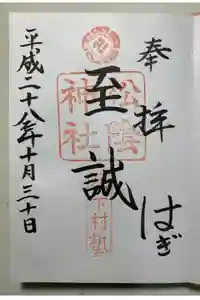 奉拝
はぎ
至誠
松陰
神社
下村塾
平成二十八年十月三十日